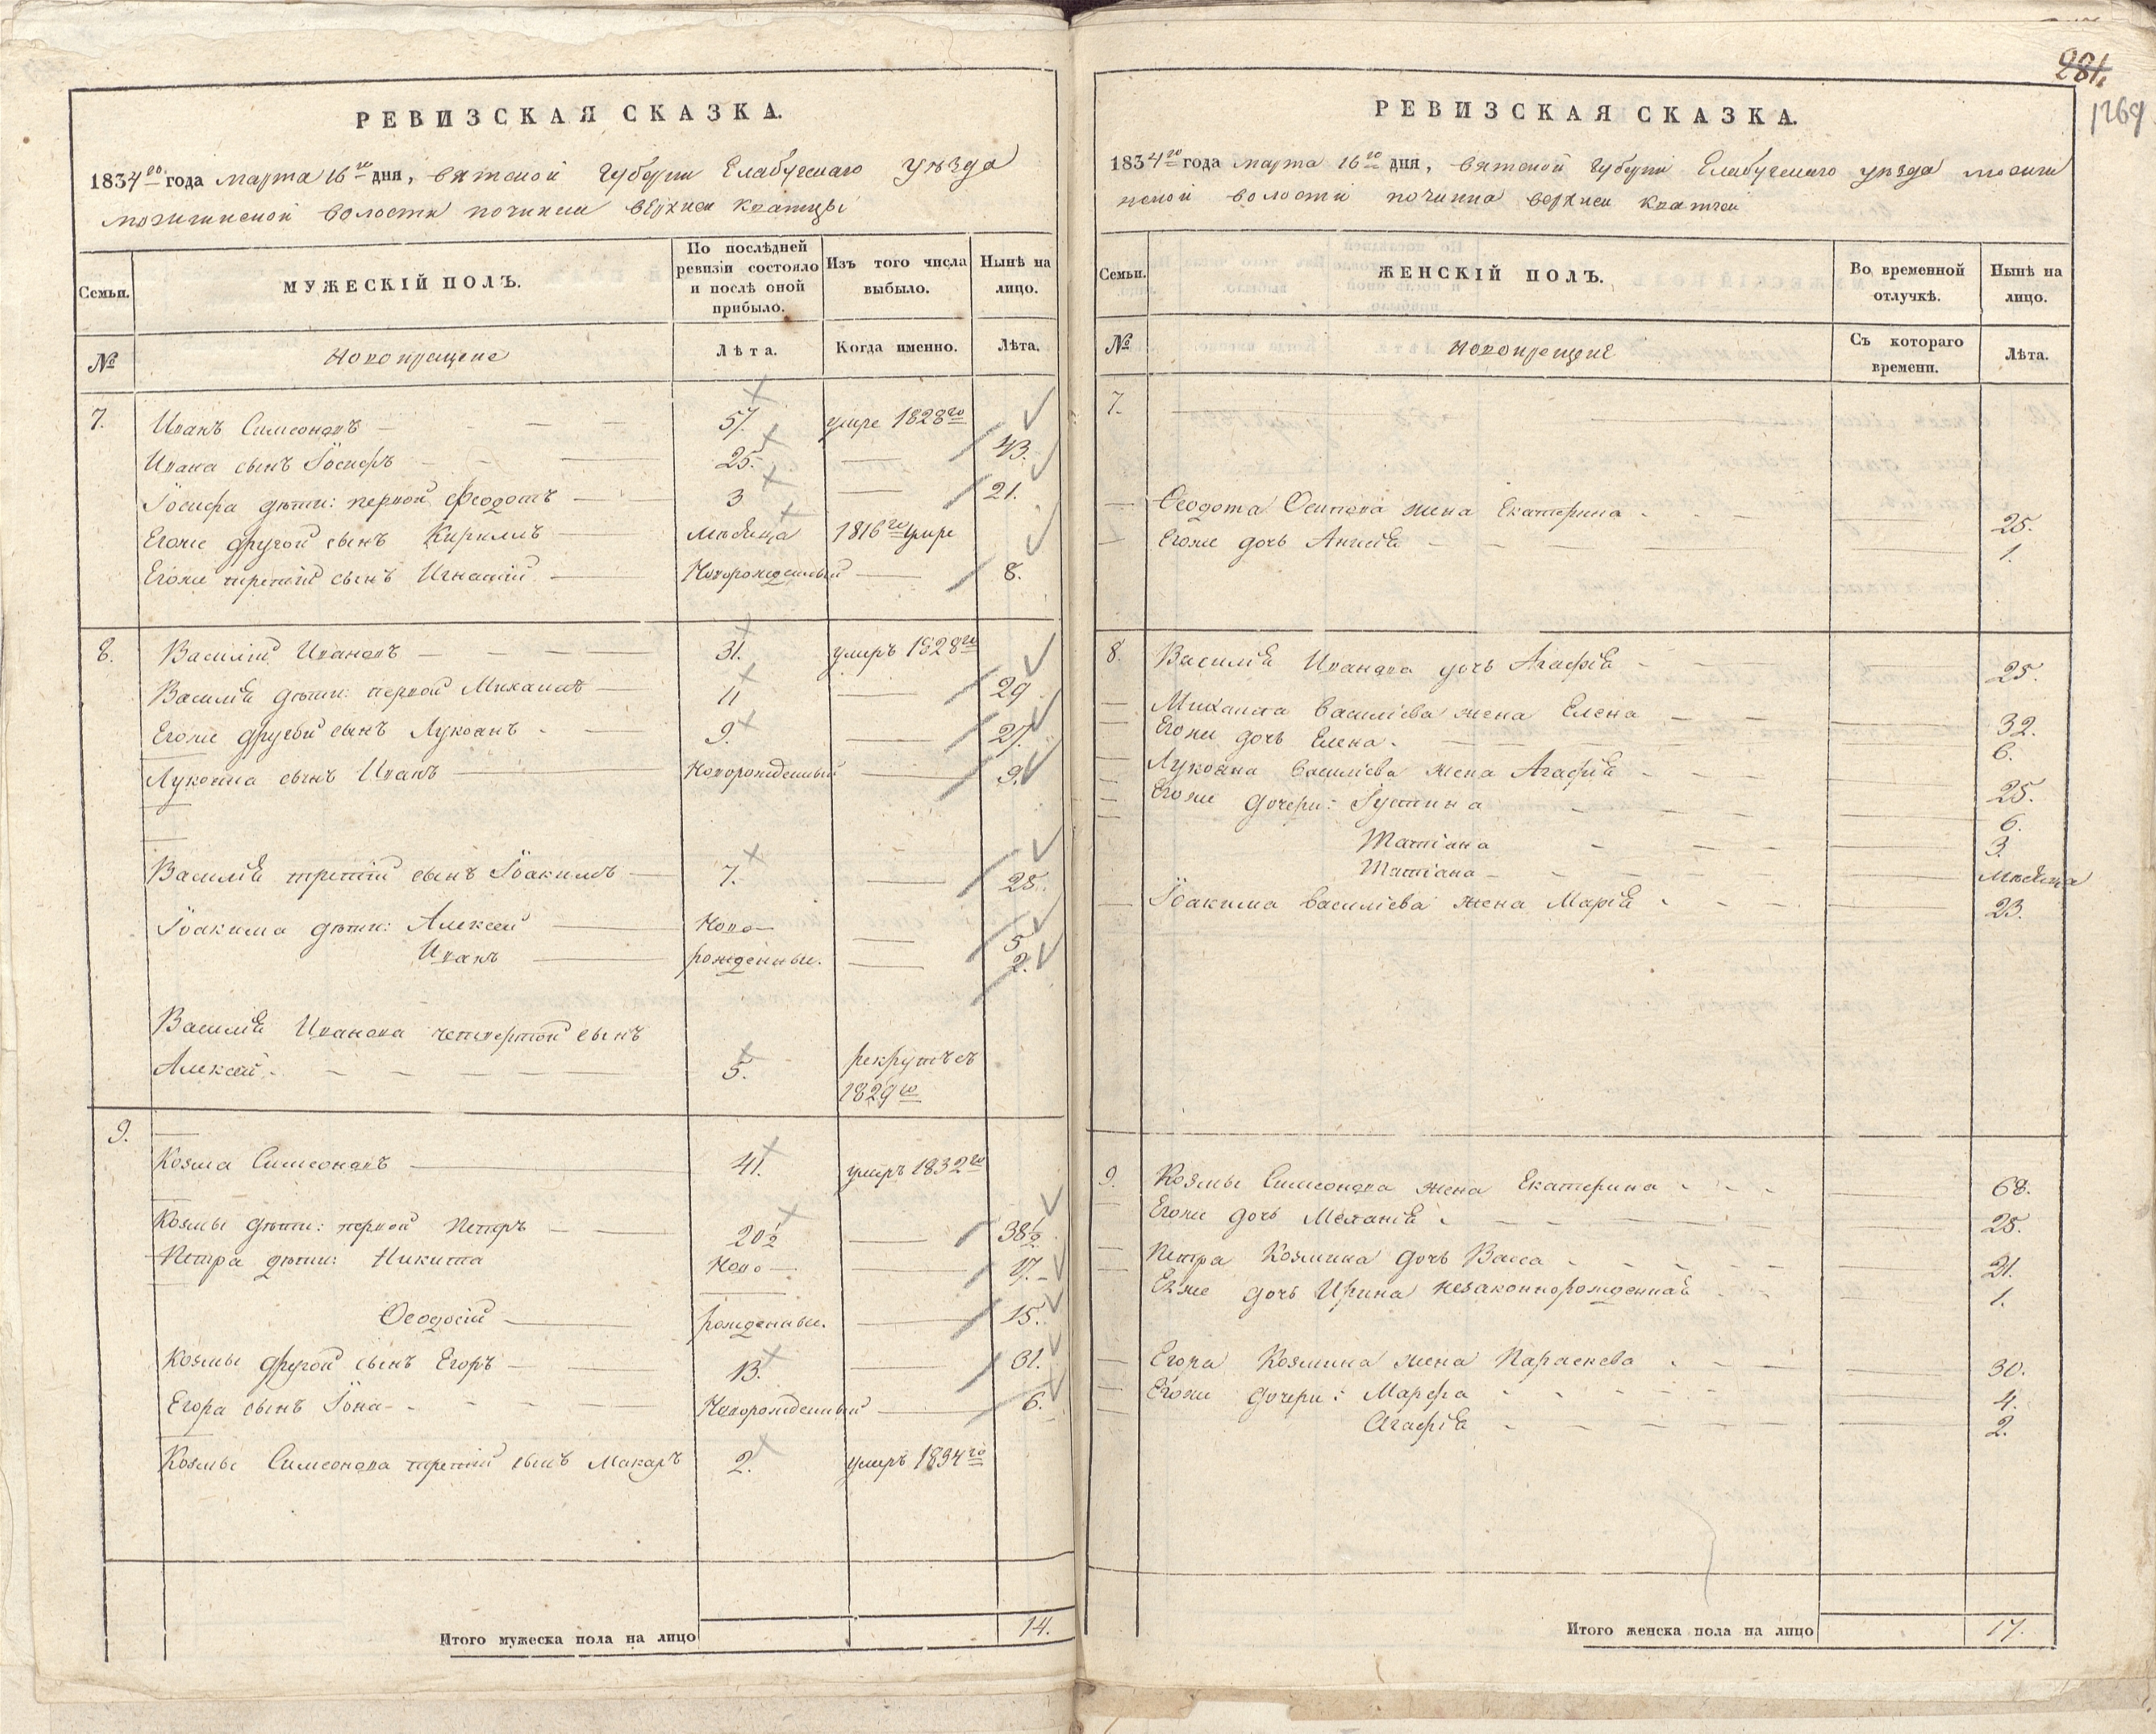 281.
1269
РЕВИЗСКАЯ СКАЗКА.
1834го года марта 16го дня, вятской губернии Елабугскаго уѣзда
можгинской волости починка верхней кватчи
Семьи.
МУЖЕСКІЙ ПОЛЪ.
По послѣдней ревизіи состояло и послѣ оной прибыло.
Изъ того числа выбыло.
Нынѣ на лицо.
№
Новокрещене
Лѣта.
Когда именно.
Лѣта.
7. Иванъ Симеоновъ 57. умре 1828го
Ивана сынъ Іосифъ 25. 43.
Іосифа дѣти: первой Феодотъ 3 21.
Егоже другой сынъ Кирилъ мѣсяца 1816го умре
Егоже третій сынъ Игнатій Новорожденный 8.
8. Василій Ивановъ 31. умеръ 1828го
Василія дѣти: первой Михаилъ 11 29
Егоже другой сынъ Лукоянъ 9. 27.
Лукояна сынъ Иванъ Новорожденный 9.
Василія третій сынъ Іоакимъ 7. 25.
Іоакима дѣти: Алексей Ново- 5
Иванъ рожденные. 2.
Василія Иванова четвертой сынъ
Алексей 5. рекрутъ съ
1829го
9.
Козма Симеоновъ 41. умеръ 1832го
Козмы дѣти: первой Петръ 20½ 38½
Петра дѣти: Никита Ново- 17.
Ѳеодосій рожденные. 15.
Козмы другой сынъ Егоръ 13. 31.
Егора сынъ Іона Новорожденный 6.
Козмы Симеонова третій сынъ Макаръ 2. умеръ 1834го
Итого мужеска пола на лицо 14.
РЕВИЗСКАЯ СКАЗКА.
1834го года марта 16го дня, вятской губерніи Елабугскаго уѣзда можги
нской волости починка верхней кватчи
Семьи.
ЖЕНСКІЙ ПОЛЪ.
Во временной отлучкѣ.
Нынѣ на лицо.
№
Новокрещене
Съ котораго времени.
Лѣта.
7.
Ѳеодота Осипова жена Екатерина 25.
Егоже дочь Анисія 1.
8. Василія Иванова дочь Агафія 25.
Михаила Василіева жена Елена 32.
Егоже дочь Елена. 6.
Лукояна Василіева жена Агафія 25.
Егоже дочери: Іустина 6.
Татіана 3.
Татіана мѣсяца
Іоакима Василіева жена Марія 23.
9. Козмы Симеонова жена Екатерина 68.
Егоже дочь Меланія 25.
Петра Козмина дочь Васса 21.
Ея же дочь Ирина незаконнорожденная 1.
Егора Козмина жена Параскева 30.
Егоже дочери: Марфа 4.
Агафія 2.
Итого женска пола на лицо 17.